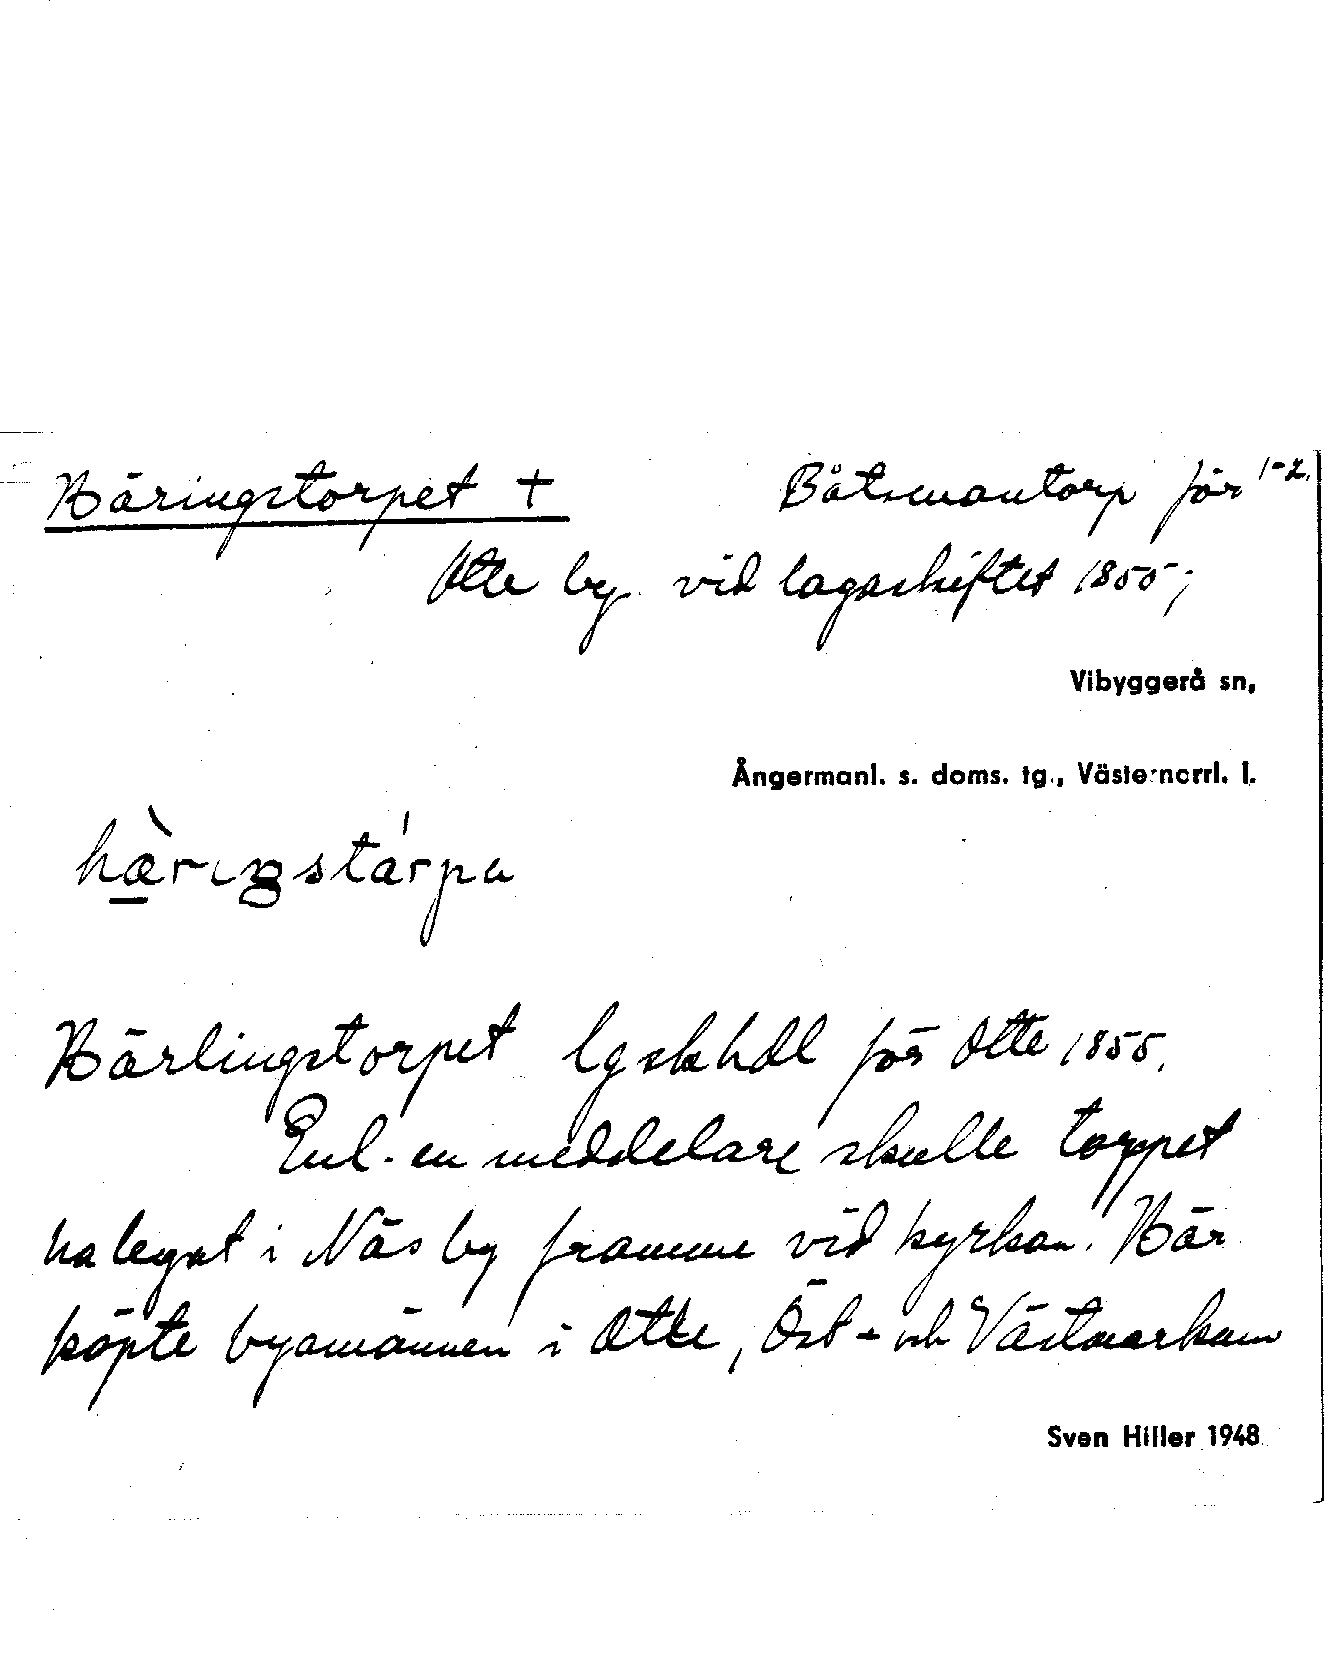 Häringstorpet + Båtsmantorp för 1-2.
Otte by vid lagaskiftet 1855;
Vibyggerå sn,
Ångermanl. s. doms. tg., Västernorrl. l.
hæ̀riŋstárpa
Härlingstorpet lgskhdl för Otte 1855.
Enl. en meddelare skulle torpet
ha legat i Näs by framme vid kyrkan. Här
köpte byamännen i Otte, Öst- och Västmarkum
Sven Hiller 1948